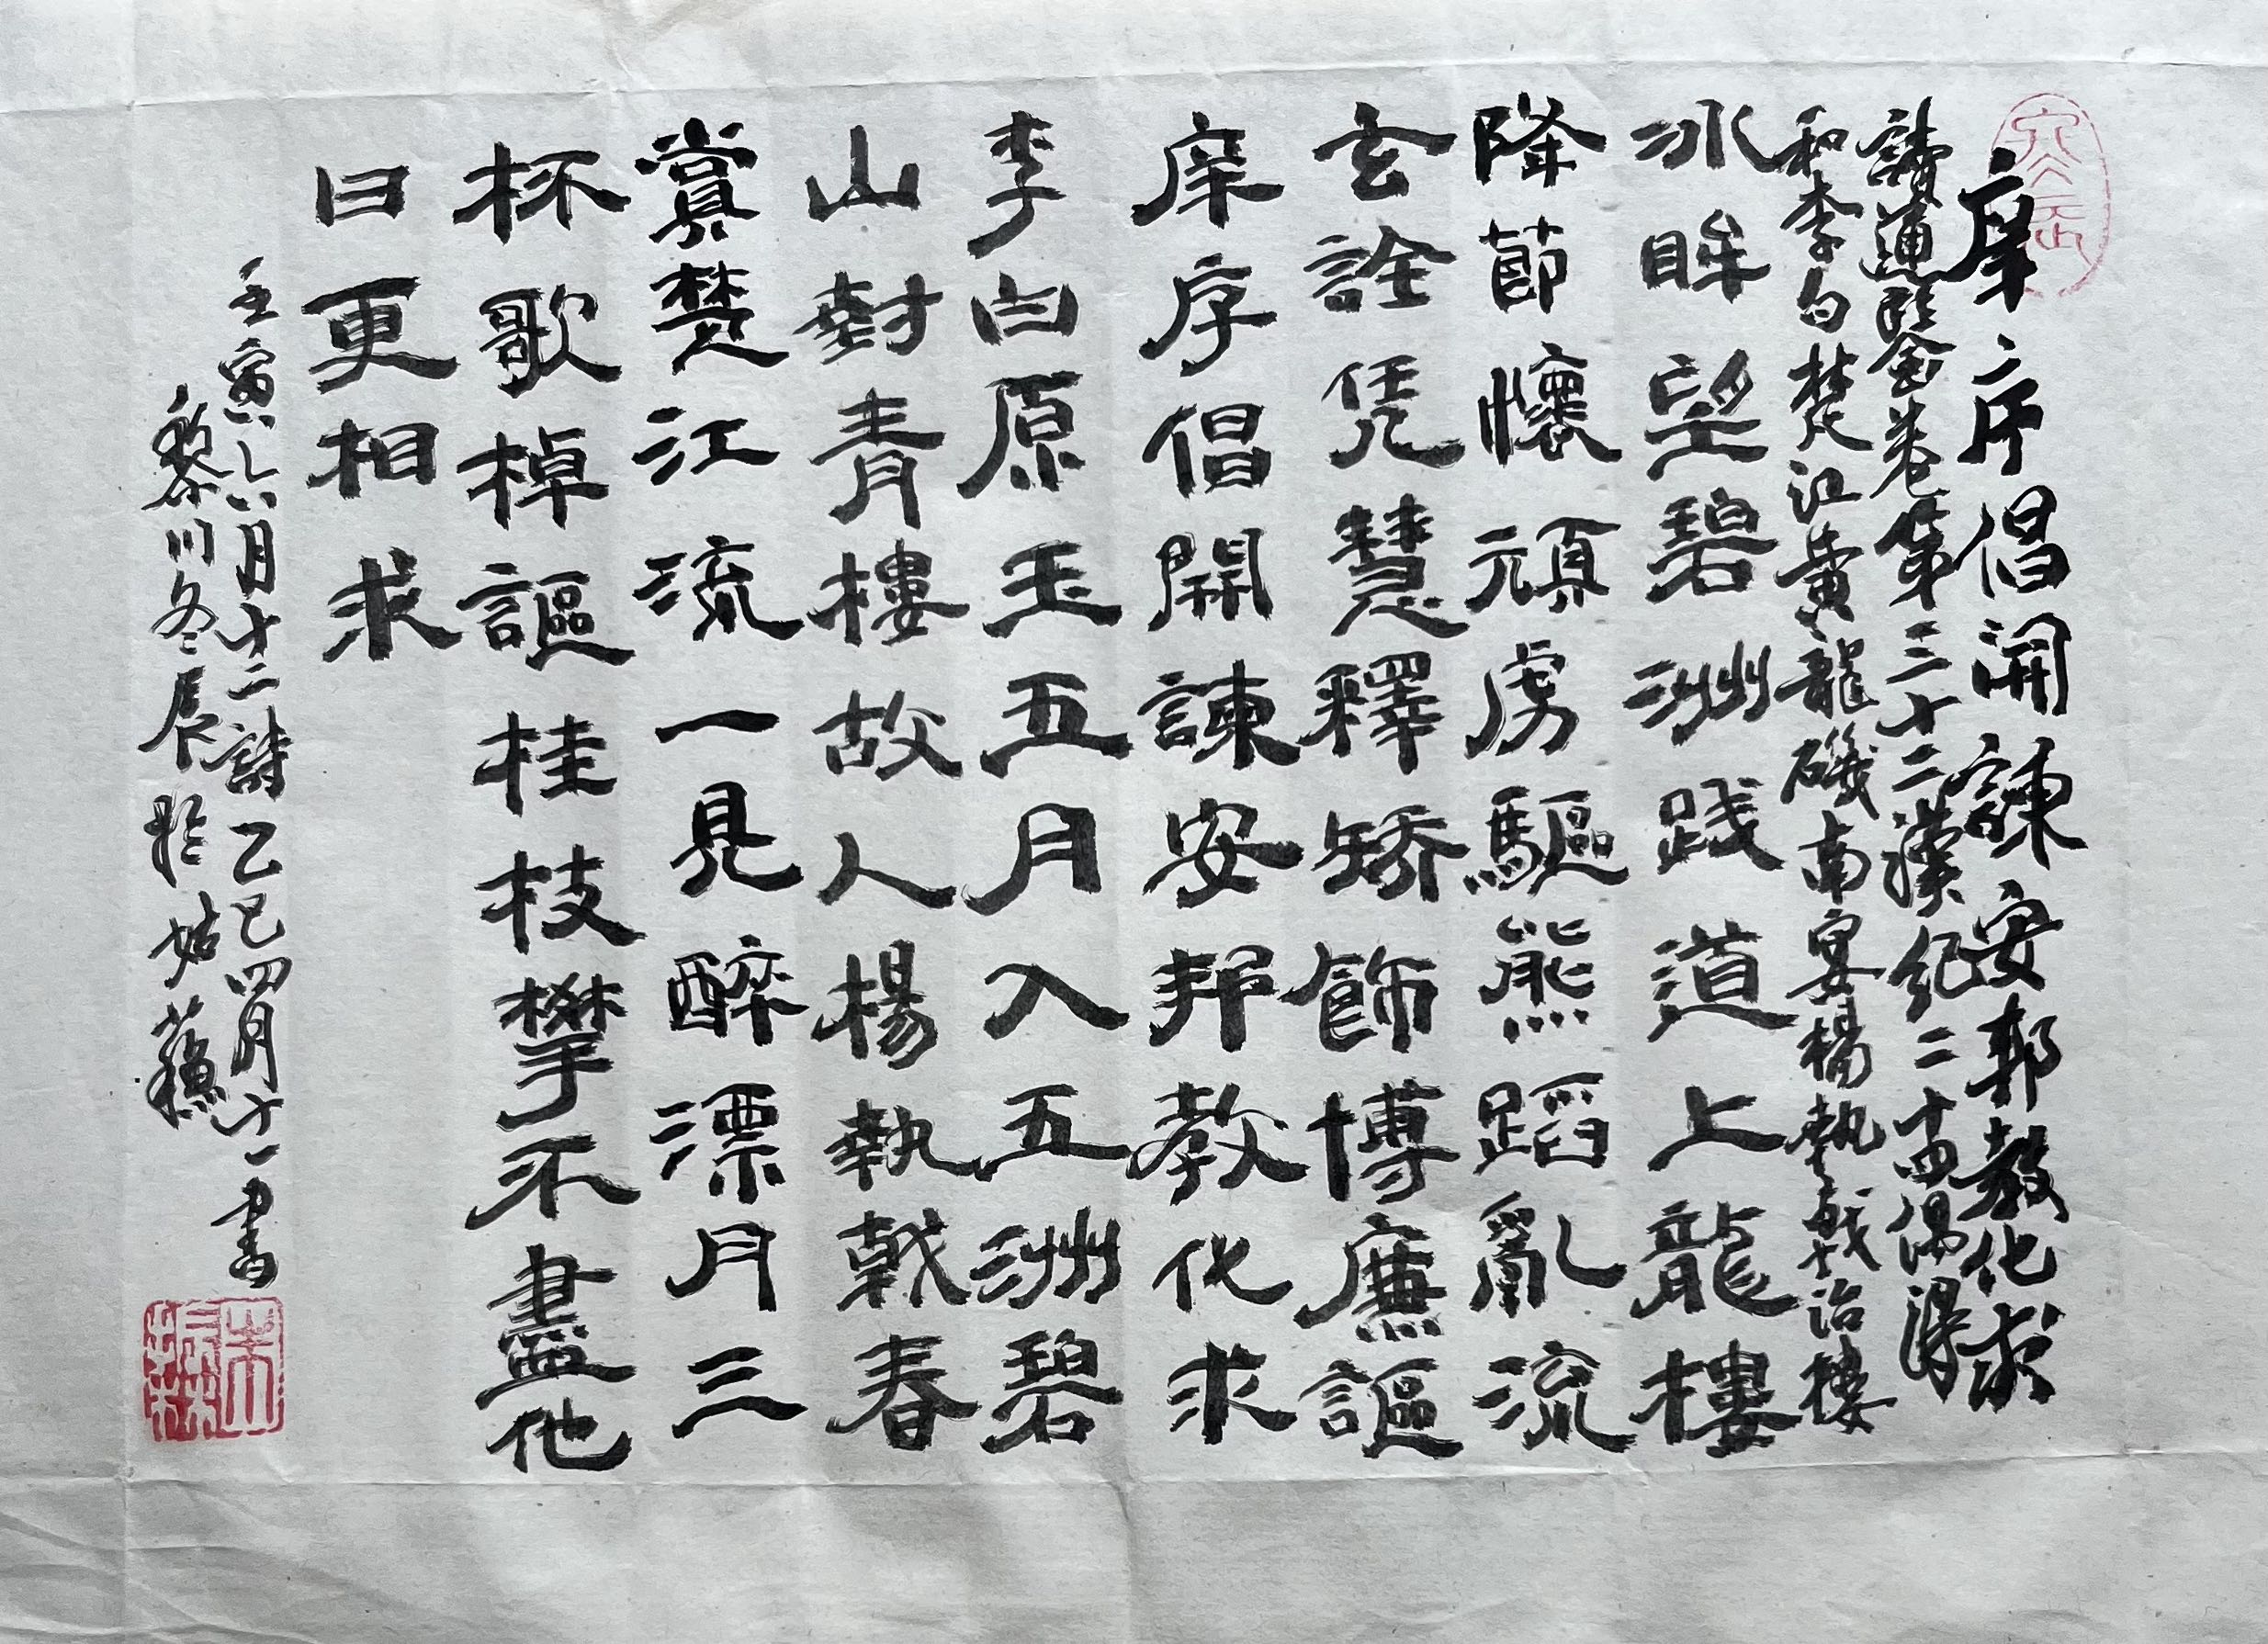 庠序倡開諫安邦教化求
讀通鑒卷第三十二漢紀二十四傷漫
和李白楚江黄龍磯南宴楊執戟治樓
冰眸望碧洲践道上龍樓
降節懷頑虏驅熊蹈亂流
玄詮凭慧釋矫飾博廉謳
庠序倡開諫安邦教化求
李白原玉五月入五洲碧
山對青樓故人楊執戟春
賞楚江流一見醉漂月三
杯歌棹謳桂枝攀不盡他
日更相求
壬寅六月十二詩乙巳四月十一書
黎川冬辰於姑蘇